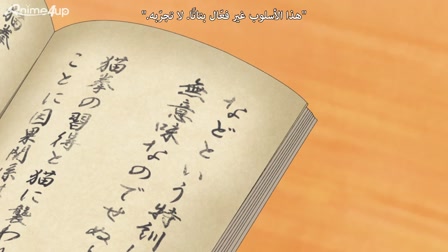 Anime4up
"هذا الأسلوب غير فعّال بتاتًا. لا تجرّبه."
などという特訓
無意味なのでせぬ
猫拳の習得と猫に襲わ
ことに因果関係
猫拳